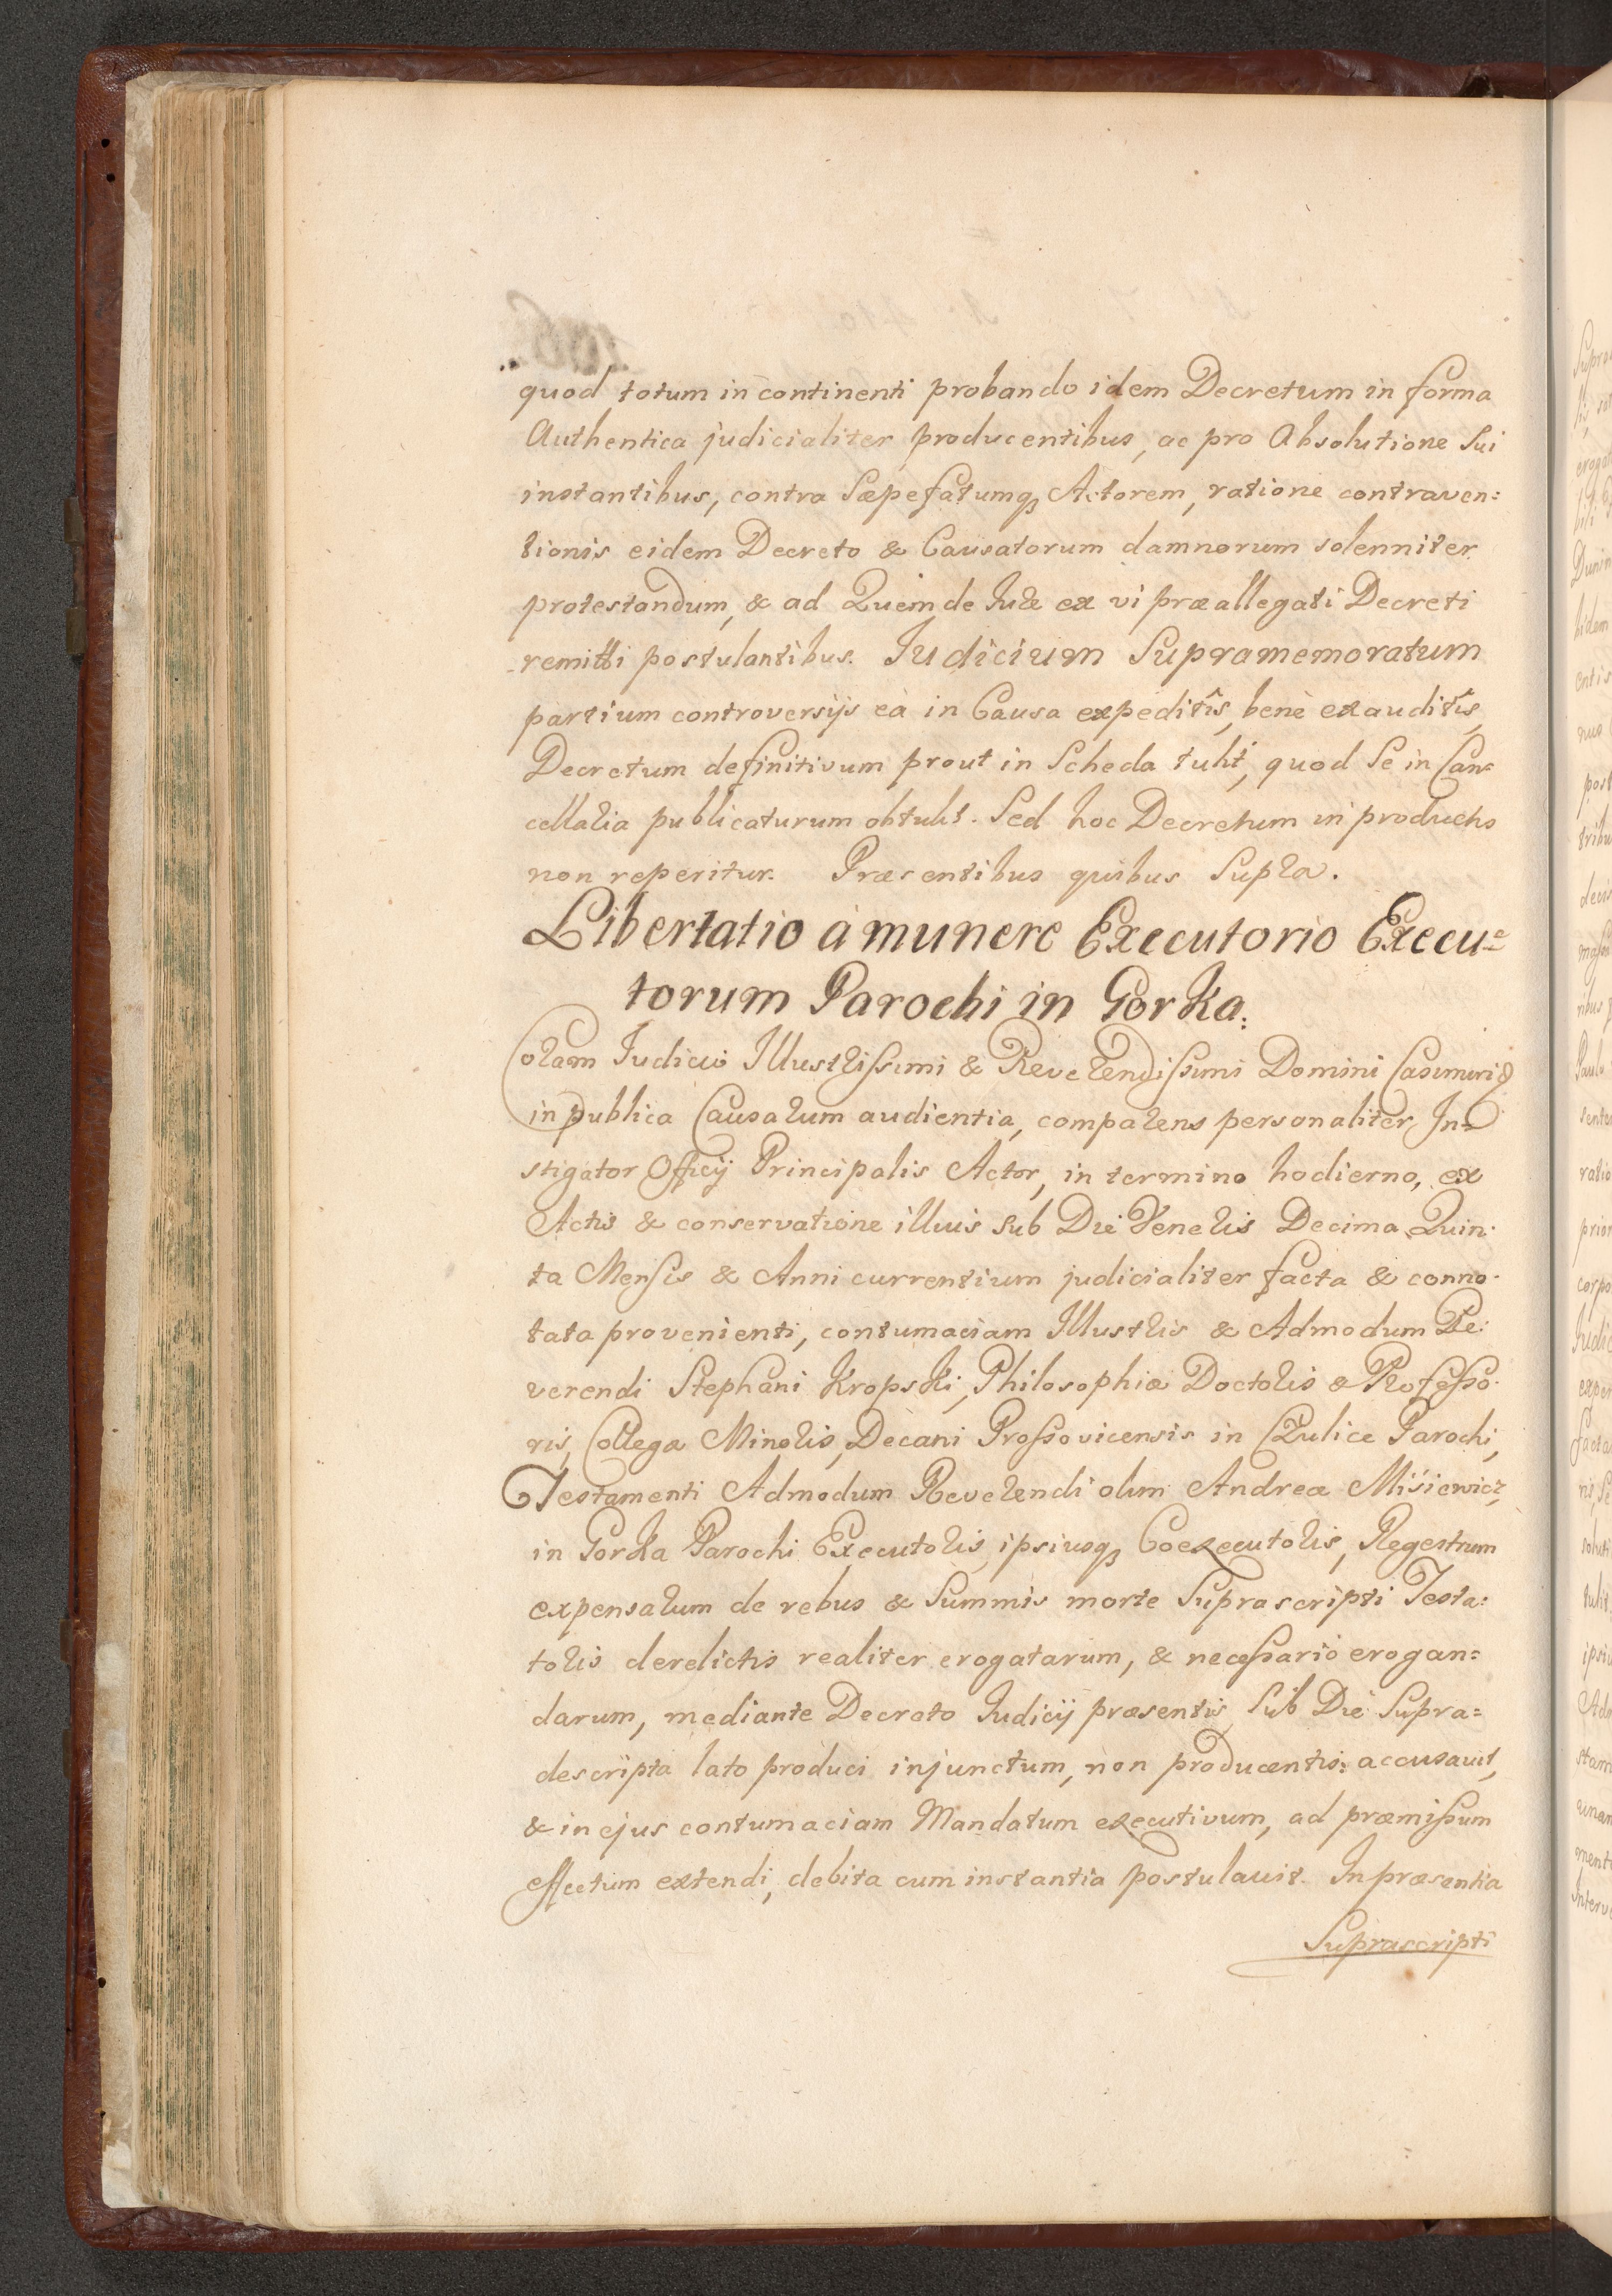 quod totum in continenti probando idem Decretum in forma
Authentica judicialiter producentibus, ac pro Absolutione Sui
instantibus, contra Sæpefatumq3 Actorem, ratione contraven=
tionis eidem Decreto & Causatorum damnorum solenniter
protestandum, & ad Quem de Jure ex vi præallegati Decreti
remitti postulantibus. Judicium Supramemoratum
partium controversijs eà in Causa expeditis, benè exauditis,
Decretum definitivum prout in Scheda tulit, quod Se in Can=
cellaria publicaturum obtulit. Sed hoc Decretum in productis
non reperitur. Præsentibus quibus Supra.
Libertatio à munere Executorio Execu=
torum Parochi in Gorka.
Coram Judicio Illustrissimi & Reverendissimi Domini Casimiri &
in publica Causarum audientia, comparens personaliter In=
stigator Officij Principalis Actor, in termino hodierno, ex
Actis & conservatione illius sub Die Veneris Decima Quin=
ta Mensis & Anni currentium judicialiter facta & conno=
tata provenienti, contumaciam Illustris & Admodum Re=
verendi Stephani Kropski, Philosophiæ Doctoris & Professo=
ris, Collegæ Minoris, Decani Prossovicensis in Czulice Parochi,
Testamenti Admodum Reverendi olim Andreæ Misiewicz,
in Gorka Parochi Executoris, ipsiusq3 Coexecutoris, Regestrum
expensarum de rebus & Summis morte Suprascripti Testa=
toris derelictis realiter erogatarum, & necessario erogan=
darum, mediante Decreto Judicij præsentis Sub Die Supra=
descripta lato produci injunctum, non producentis: accusavit,
& in ejus contumaciam Mandatum executivum, ad præmissum
effectum extendi, debita cum instantia postulavit. In præsentia
Suprascripti